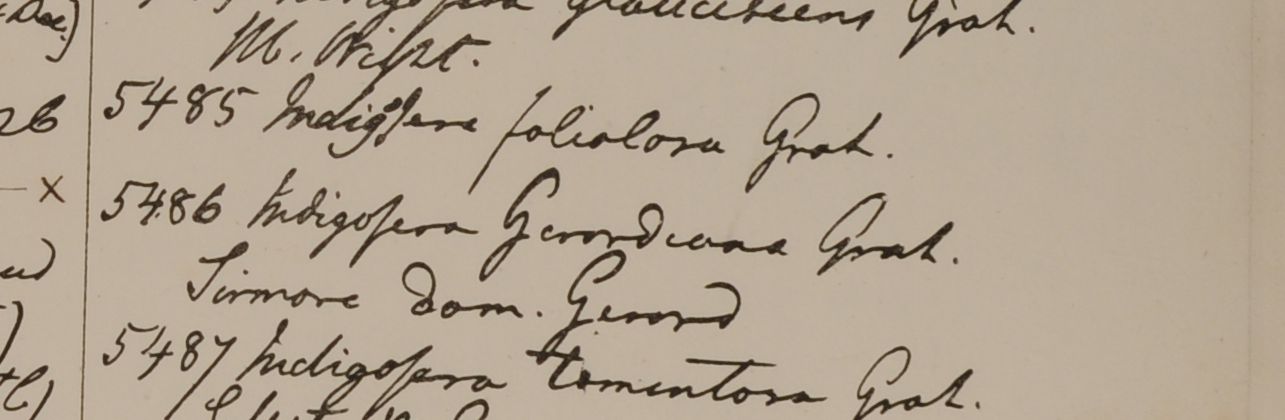 glaucescens Grah.
M. Wight.
5485 Indigofera foliolosa Grah.
26
x
5486 Indigofera Gerardiana Grah.
Sirmore Dom. Gerard
5487 Indigofera tomentosa Grah.